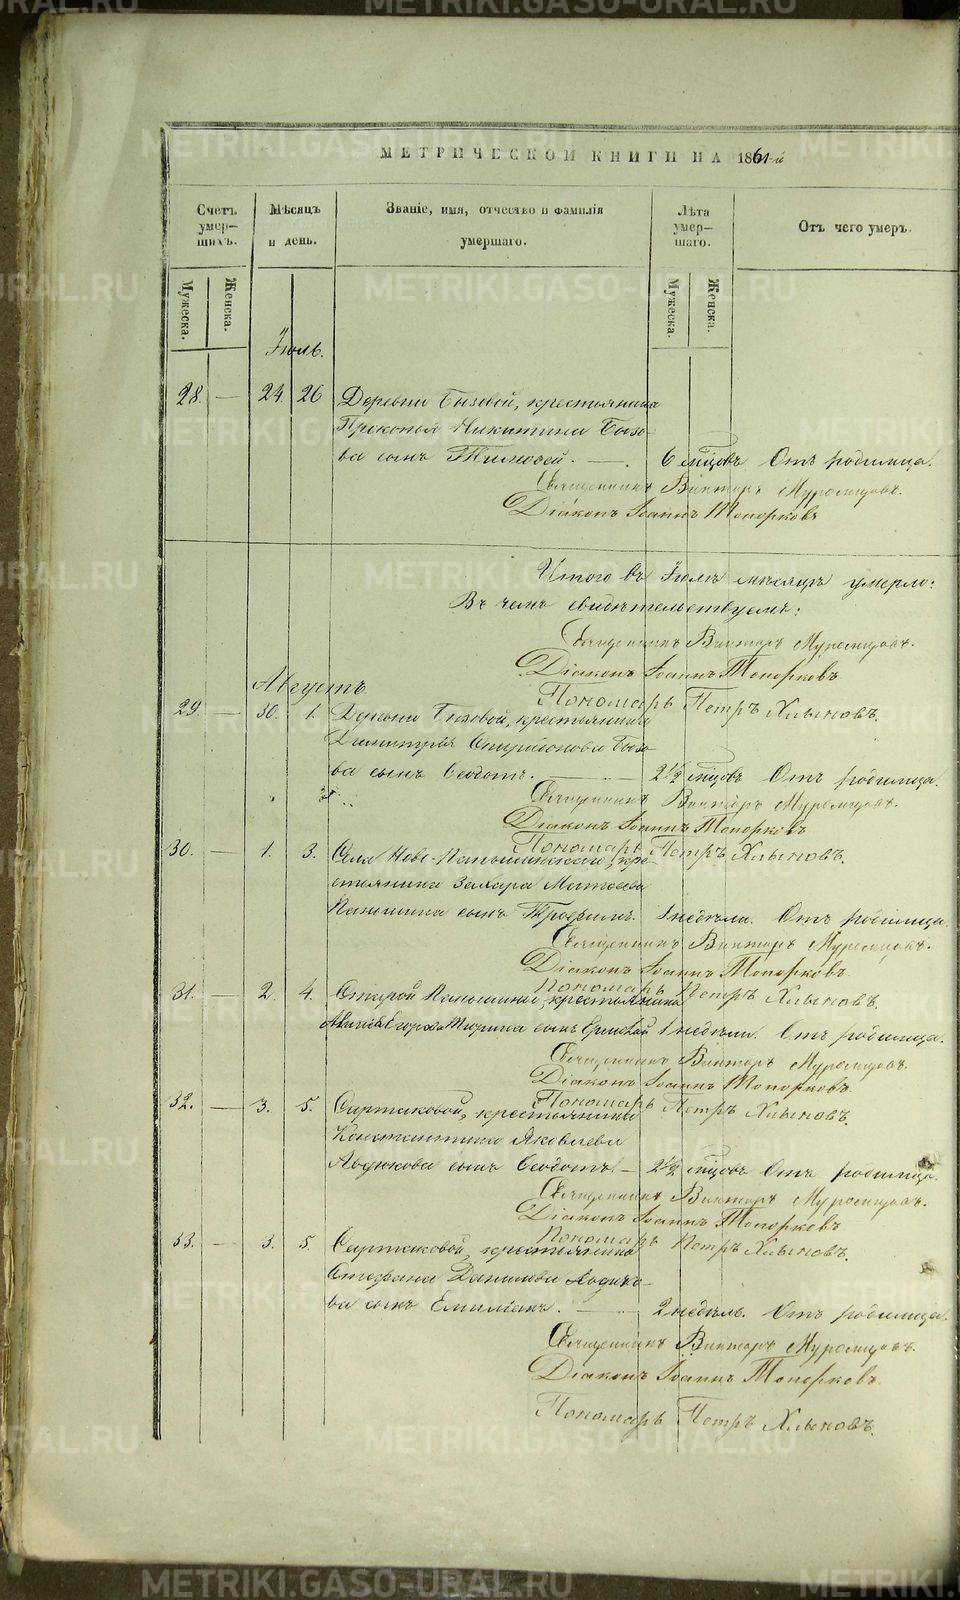 МЕТРИЧЕСКОЙ КНИГИ НА 1861-й
Счетъ умер-шихъ.
Мѣсяцъ и день.
Званіе, имя, отчество и фамилія умершаго.
Лѣта умер-шаго.
Отъ чего умеръ.
Мужеска.
Женска.
Мужеска.
Женска.
Іюль.
28. — 24. 26 Деревни Бызовой, крестьянина
Прокопья Никитина Бызо-
ва сынъ Тимофей. — . 6 мѣсцовъ Отъ родимца.
Священникъ Викторъ Муромцовъ.
Діаконъ Іоаннъ Топорковъ
Итого въ Іюлѣ мѣсяцѣ умерло:
Въ чемъ свидѣтельствуемъ:
Священникъ Викторъ Муромцовъ.
Діаконъ Іоаннъ Топорковъ
Пономарь Петръ Хлыновъ.
Августъ
29. — 30. 1. Деревни Бызовой, крестьянина
Димитрія Спиридонова Бызо
ва сынъ Ѳеодотъ. — 2½ мѣсцовъ Отъ родимца.
Священникъ Викторъ Муромцовъ.
Діаконъ Іоаннъ Топорковъ
Пономарь Петръ Хлыновъ.
30. — 1. 3. Села Ново-Паньшинскаго, кре-
стьянина Захара Матѳеева
Паньшина сынъ Трофимъ. 1 недѣли. Отъ родимца.
Священникъ Викторъ Муромцовъ.
Діаконъ Іоаннъ Топорковъ
Пономарь Петръ Хлыновъ.
31. — 2. 4. Старой Паньшиной, крестьянина
Егорова сынъ 1 недѣли. Отъ родимца.
Священникъ Викторъ Муромцовъ.
Діаконъ Іоаннъ Топорковъ
Пономарь Петръ Хлыновъ.
32. — 3. 5. Сартаковой, крестьянина
Константина Яковлева
сынъ Ѳеодотъ. — 2½ мѣсцовъ Отъ родимца.
Священникъ Викторъ Муромцовъ.
Діаконъ Іоаннъ Топорковъ
Пономарь Петръ Хлыновъ.
33. — 3. 5. Сартаковой, крестьянина
Стефана Данилова
ва сынъ Емиліанъ. — 2 недѣль. Отъ родимца.
Священникъ Викторъ Муромцовъ.
Діаконъ Іоаннъ Топорковъ.
Пономарь Петръ Хлыновъ.
METRIKI.GASO-URAL.RU